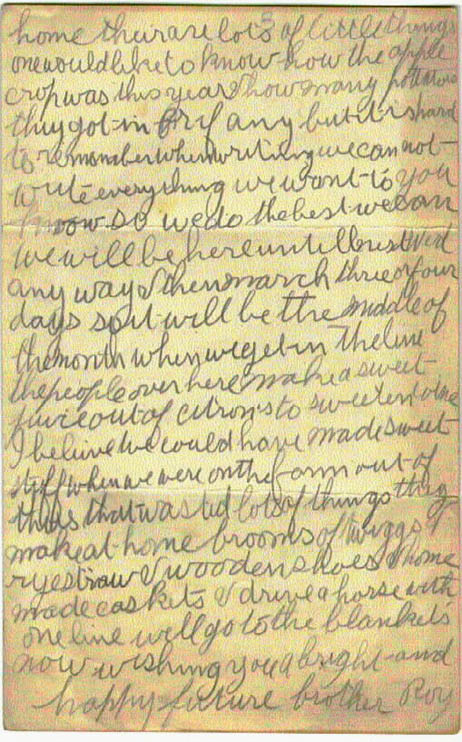 home their are lots of little things
one would like to know how the apple
crop was this year & how many potatoes
they got in or if any but it is hard
to remember when writing we can not
write everything we want to you
know so we do the best we can
we will be here untill
any way & then march three or four
days so it will be the middle of
the month when we get in the line
the people over here make a sweet
juice out of citrons to sweeten
I beleive we could have made sweet
stuff when we were on the farm out of
things that wasted lots of things they
make at home brooms of twiggs &
rye straw & wooden shoes & home
made caskets & drive a horse with
one line well go to the blankets
now wishing you a bright and
happy future brother Roy